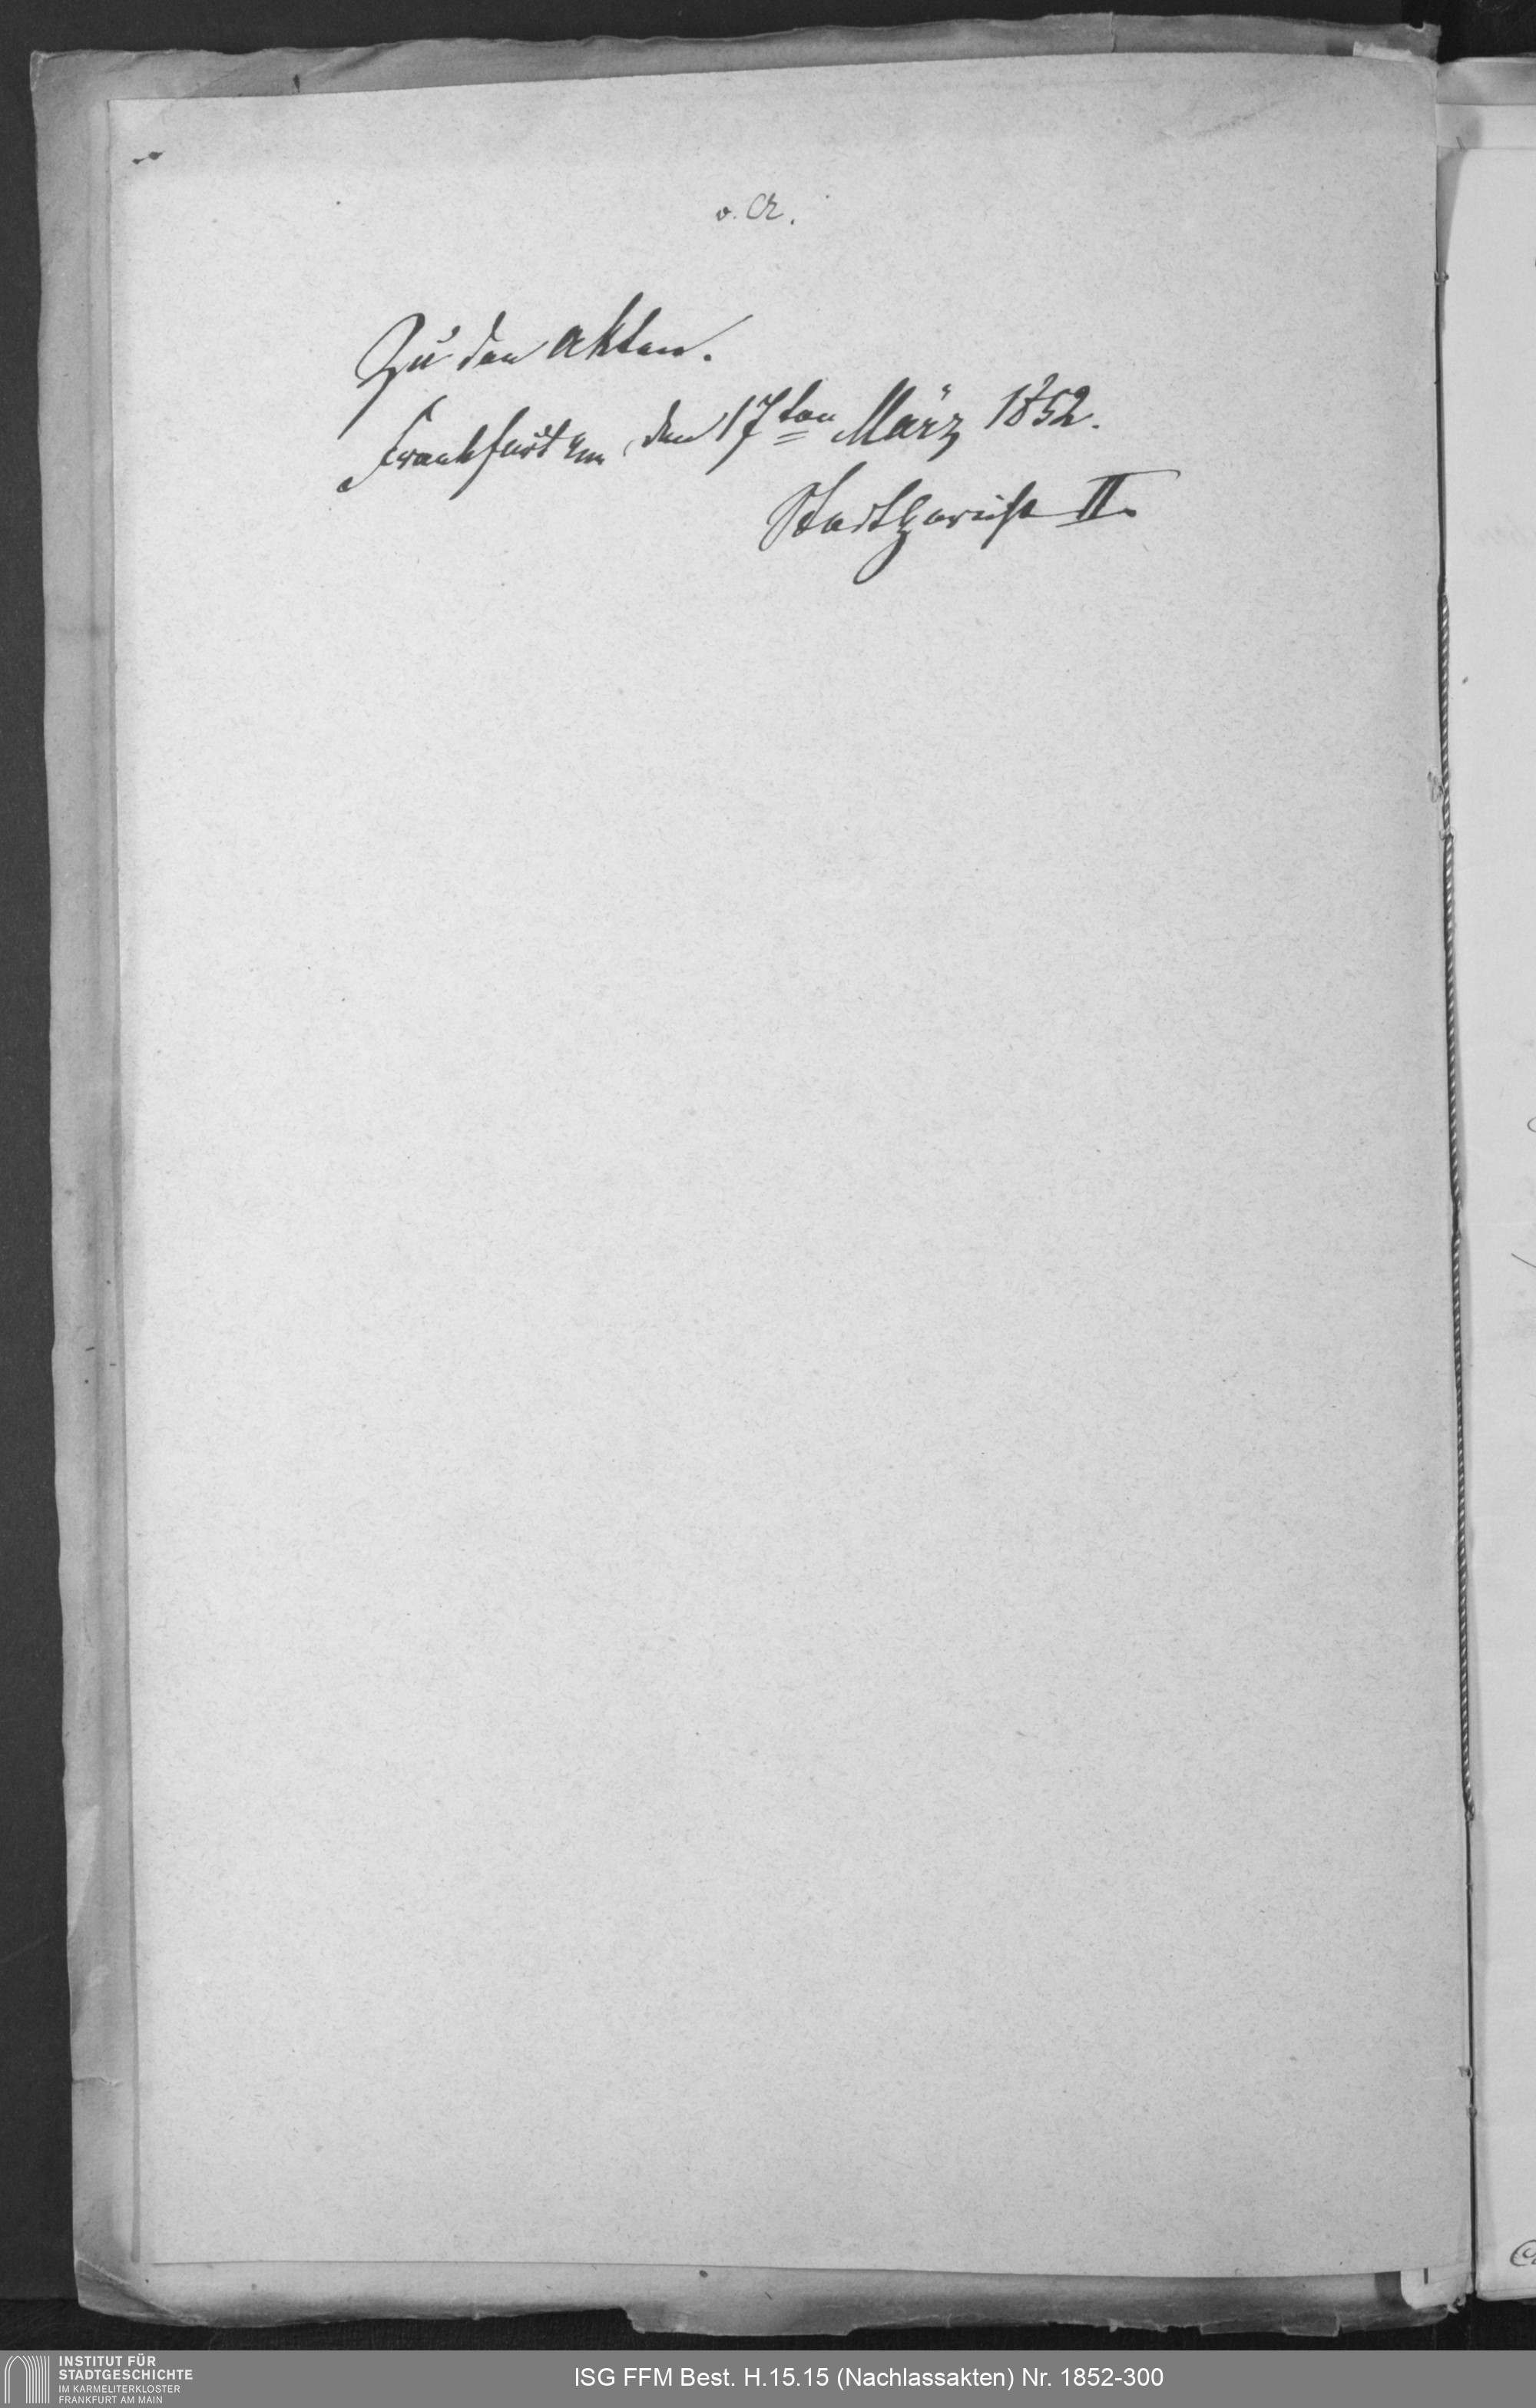 v. Cr.
Zu den Akten.
Frankfurt a/m, den 17ten März 1852.
Stadtgericht II.
INSTITUT FÜR
STADTGESCHICHTE
IM KARMELITERKLOSTER
FRANKFURT AM MAIN
ISG FFM Best. H.15.15 (Nachlassakten) Nr. 1852-300